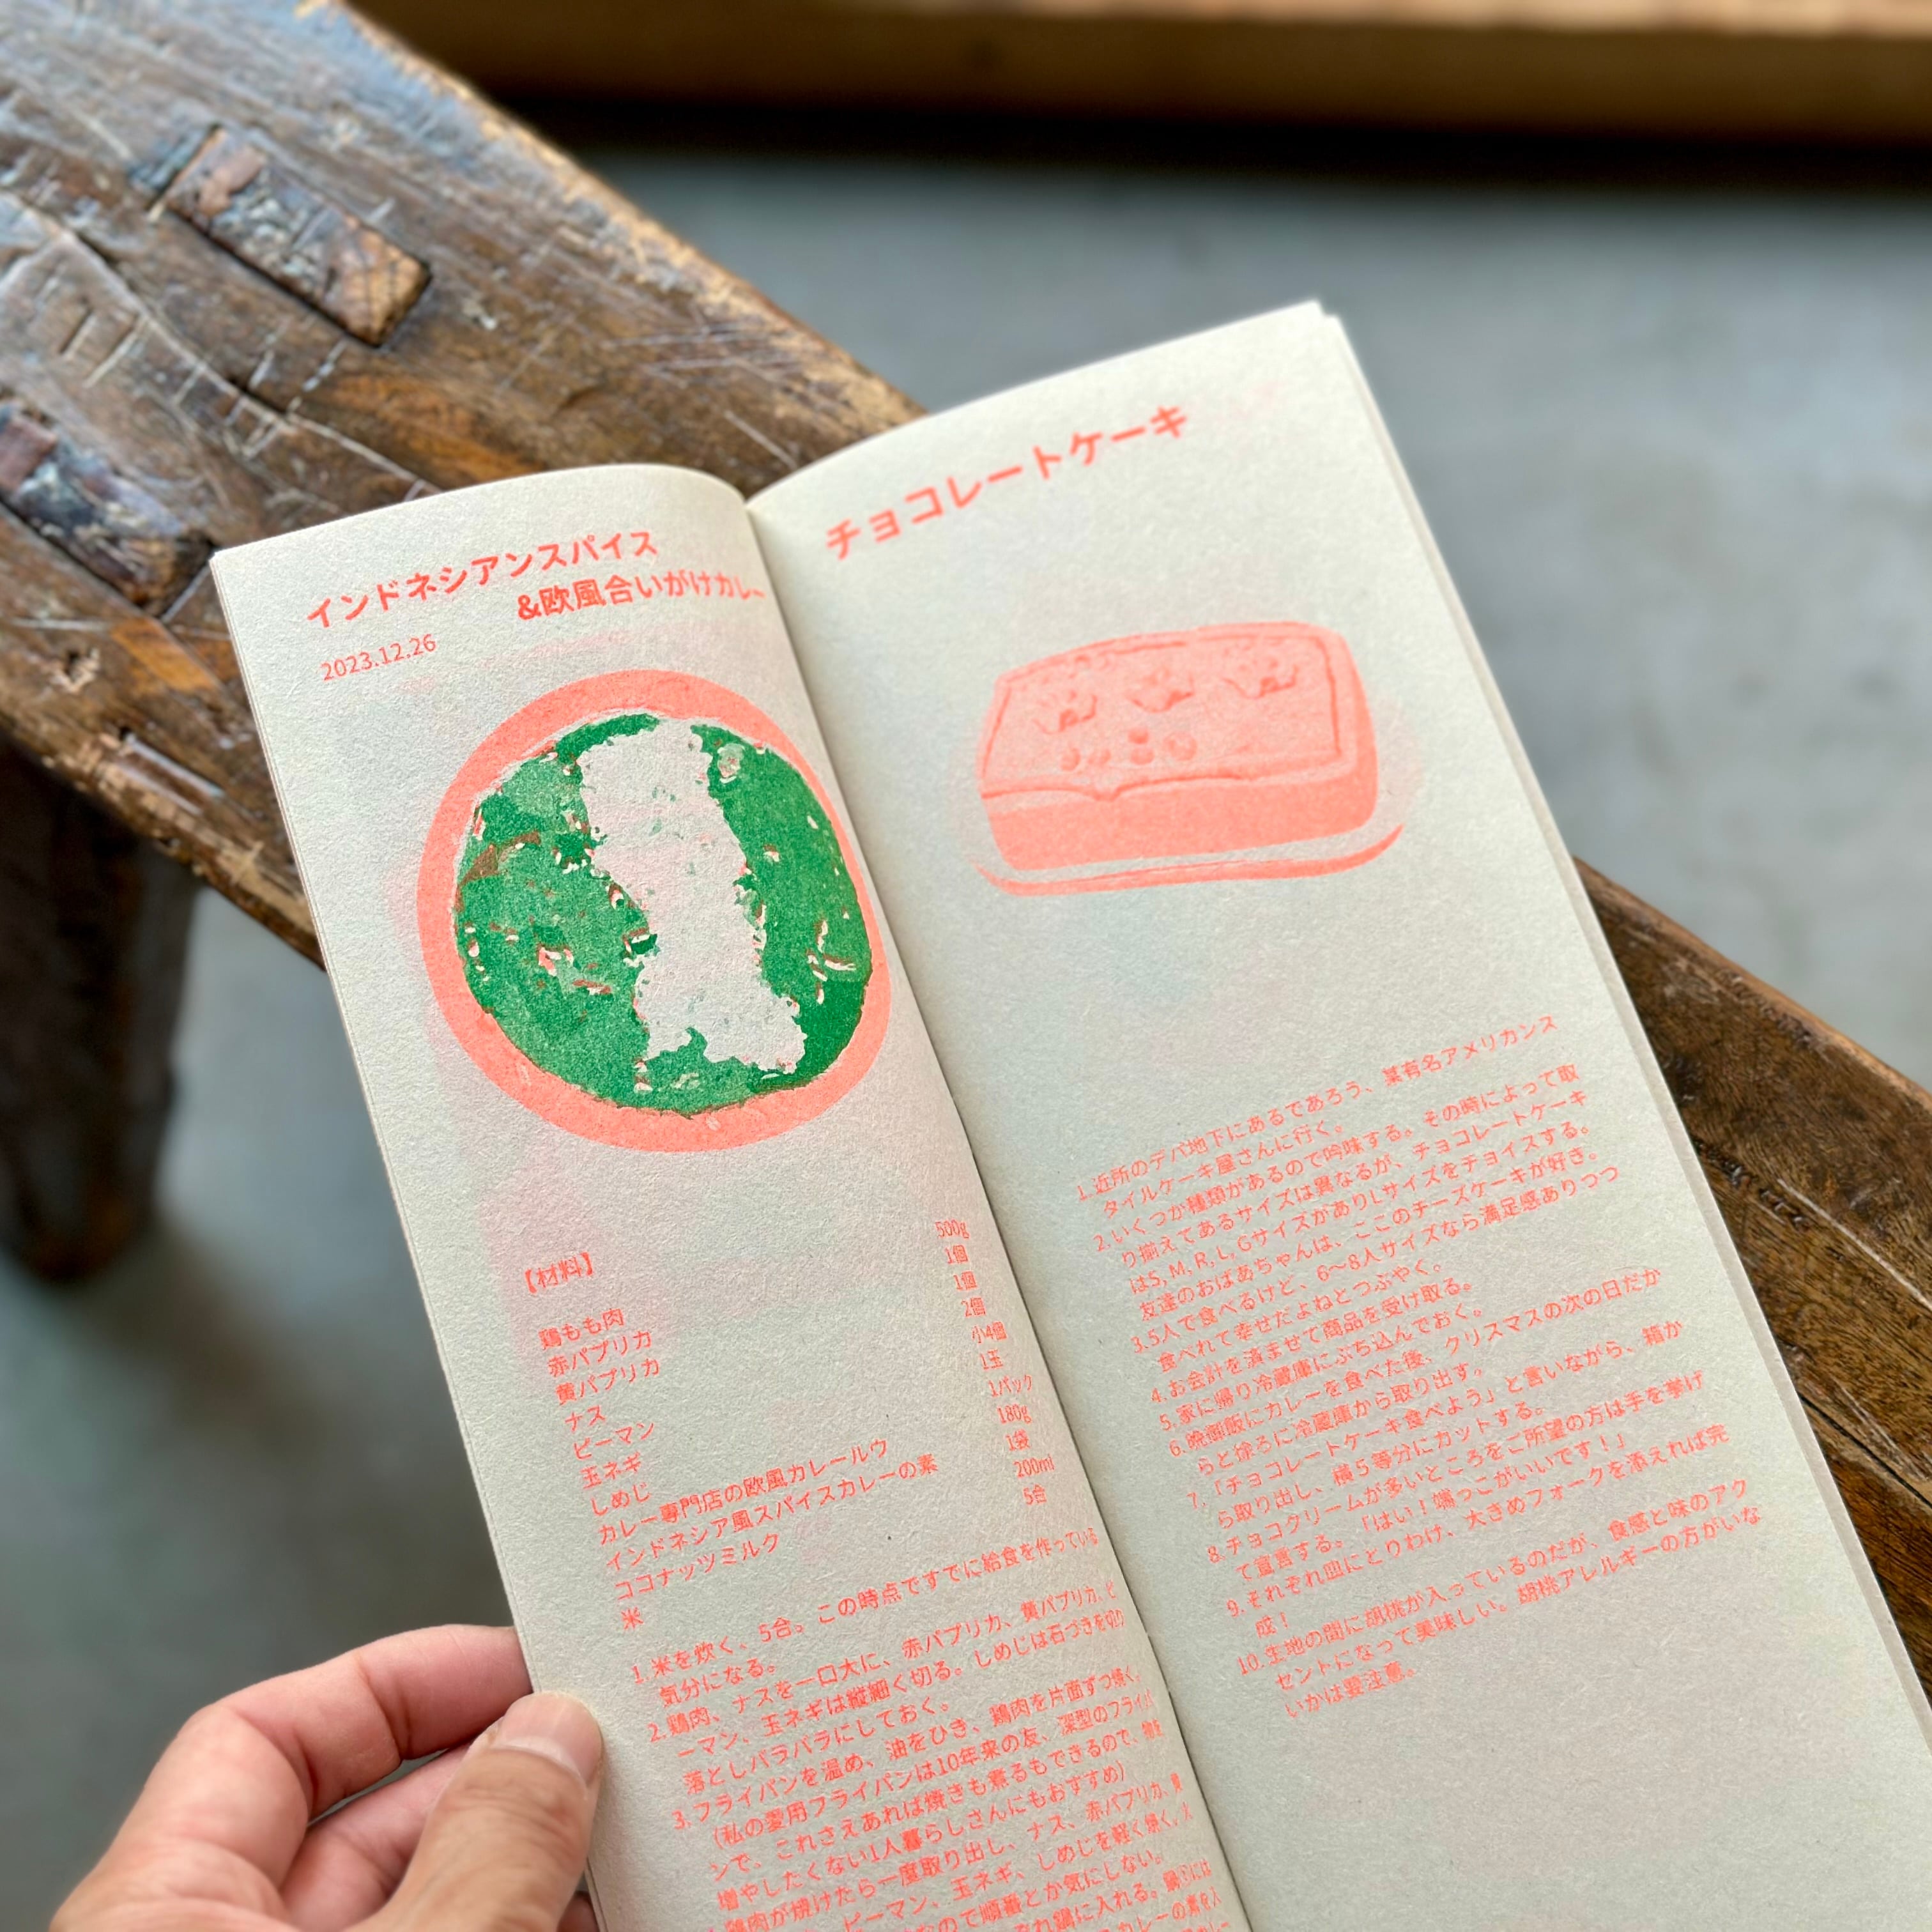 インドネシアンスパイス
&欧風合いがけカレー
2023.12.26
【材料】
鶏もも肉 500g
赤パプリカ 1個
黄パプリカ 1個
ナス 2個
ピーマン 小4個
玉ネギ 1玉
しめじ 1パック
カレー専門店の欧風カレールウ 180g
インドネシア風スパイスカレーの素 1袋
ココナッツミルク 200ml
米 5合
1. 米を炊く、5合。この時点ですでに給食を作っている
気分になる。
2. 鶏肉、ナスを一口大に、赤パプリカ、黄パプリカ、ピ
ーマン、玉ネギは縦細く切る。しめじは石づきを切り
落としバラバラにしておく。
3. フライパンを温め、油をひき、鶏肉を片面ずつ焼く。
(私の愛用フライパンは10年来の友、深型のフライパ
ンで、これさえあれば焼きも煮るもできるので、物を
増やしたくない1人暮らしさんにもおすすめ)
鶏肉が焼けたら一度取り出し、ナス、赤パプリカ、黄
ピーマン、玉ネギ、しめじを軽く焼く。火
なので順番とか気にしない。
ぞれ鍋に入れる。
カレーの素を入
チョコレートケーキ
1. 近所のデパ地下にあるであろう、某有名アメリカンス
タイルケーキ屋さんに行く。
2. いくつか種類があるので吟味する。その時によって取
り揃えてあるサイズは異なるが、チョコレートケーキ
はS, M, R, L, GサイズがありLサイズをチョイスする。
友達のおばあちゃんは、ここのチーズケーキが好き。
3. 5人で食べるけど、6〜8人サイズなら満足感ありつつ
食べれて幸せだよねとつぶやく。
4. お会計を済ませて商品を受け取る。
5. 家に帰り冷蔵庫にぶち込んでおく。
6. 晩御飯にカレーを食べた後、クリスマスの次の日だか
らと徐ろに冷蔵庫から取り出す。
7. 「チョコレートケーキ食べよう」と言いながら、箱か
ら取り出し、横5等分にカットする。
8. チョコクリームが多いところをご所望の方は手を挙げ
て宣言する。「はい!端っこがいいです!」
9. それぞれ皿にとりわけ、大きめフォークを添えれば完
成!
10. 生地の間に胡桃が入っているのだが、食感と味のアク
セントになって美味しい。胡桃アレルギーの方がいな
いかは要注意。